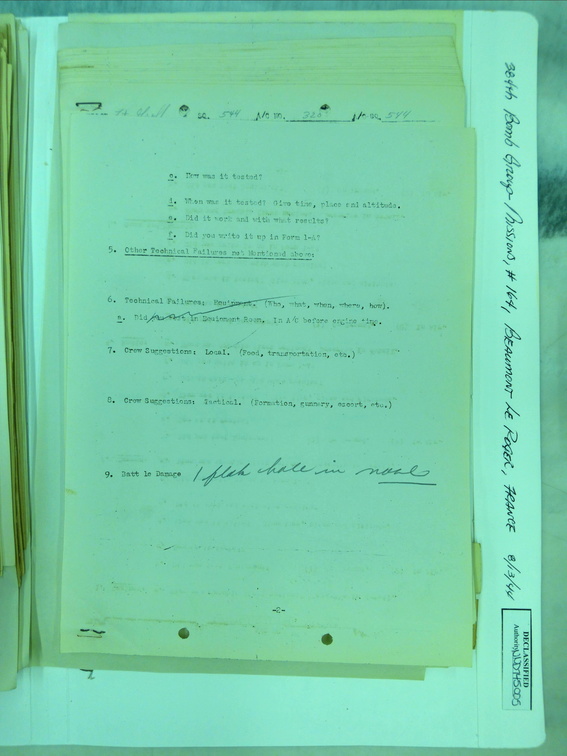 SQ. 544 A/C NO. A/C SQ. 544
c. How was it tested?
d. When was it tested? Give time, place and altitude.
e. Did it work and with what results?
f. Did you write it up in Form 1-A?
5. Other Technical Failures not Mentioned above:
6. Technical Failures: Equipment. (Who, what, when, where, how).
a. Did in Equipment Room. In A/C before engine
7. Crew Suggestions: Local. (Food, transportation, etc.)
8. Crew Suggestions: Tactical. (Formation, gunnery, escort, etc.)
9. Battle Damage 1 flak hole in nose
-2-
384th Bomb Group - Mission, # 164, Beaumont Le Roger, France 8/13/44
DECLASSIFIED
Authority NND745005